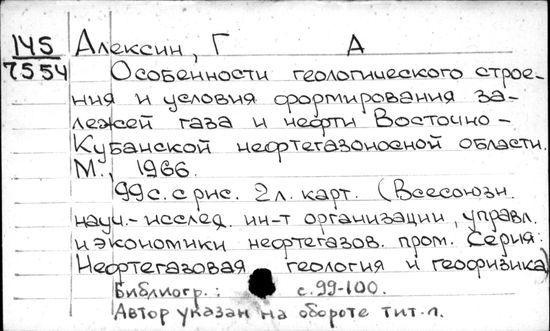 145 Алексин, Г А
7554 Особенности геологического строе-
ния и условия формирования за-
лежей газа и нефти Восточно-
Кубанской нефтегазоносной области.
М., 1966.
99 с. с рис. 2 л. карт. (Всесоюзн
науч.-исслед. ин-т организации, управл.
и экономики нефтегазов. пром. Серия:
Нефтегазовая геология и геофизика)
Библиогр.: с. 99-100.
Автор указан на обороте тит. л.